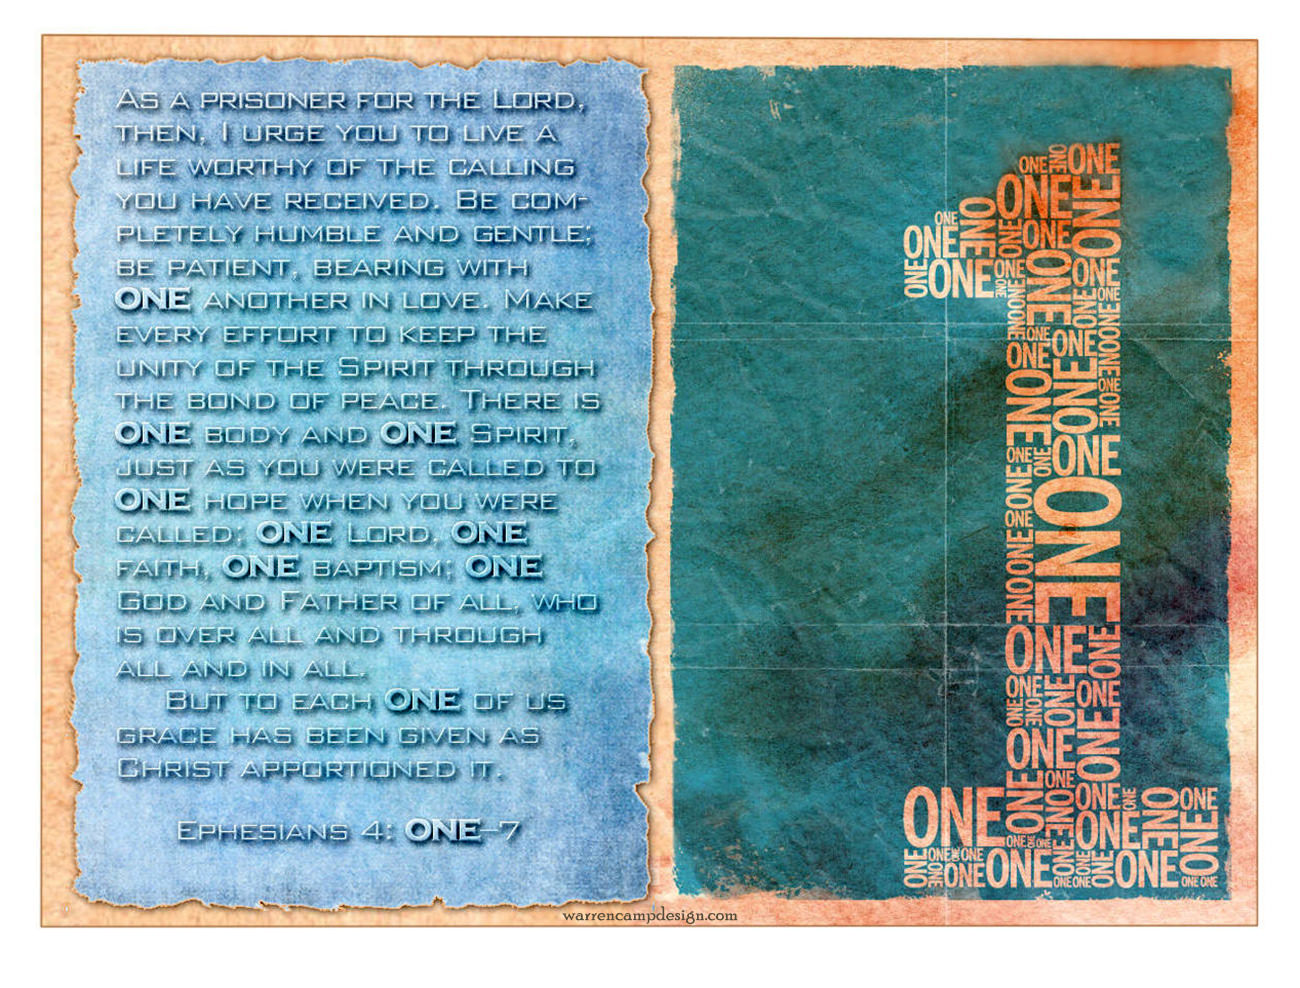 As a prisoner for the Lord,
then, I urge you to live a
life worthy of the calling
you have received. Be com-
pletely humble and gentle;
be patient, bearing with
ONE another in love. Make
every effort to keep the
unity of the Spirit through
the bond of peace. There is
ONE body and ONE Spirit,
just as you were called to
ONE hope when you were
called; ONE Lord, ONE
faith, ONE baptism; ONE
God and Father of all, who
is over all and through
all and in all.
But to each ONE of us
grace has been given as
Christ apportioned it.
Ephesians 4: ONE–7
ONE ONE ONE
ONE
ONE ONE
ONE ONE ONE ONE ONE
ONE ONE ONE ONE
ONE ONE ONE
ONE ONE
ONE ONE
ONE
ONE ONE
ONE
ONE ONE
ONE ONE
ONE
ONE ONE
ONE ONE ONE
ONE ONE
ONE
ONE ONE ONE ONE ONE
ONE ONE ONE
ONE ONE ONE ONE ONE
ONE ONE ONE ONE
warrencampdesign.com